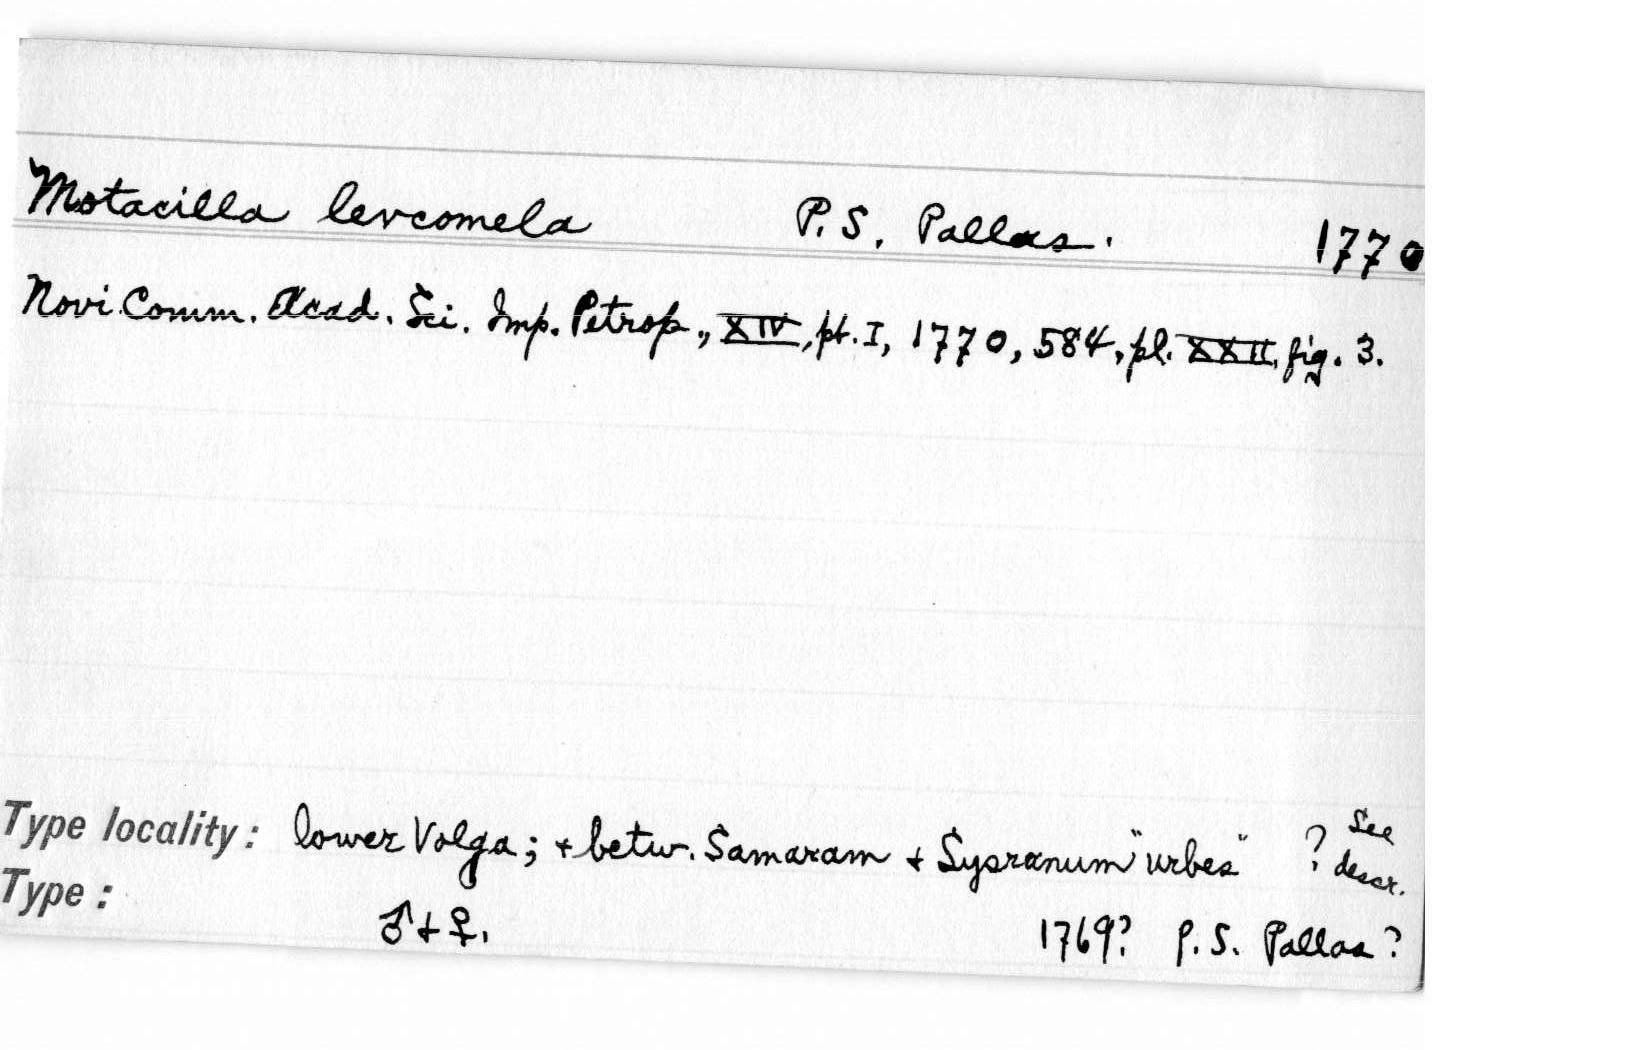 Motacilla levcomela P. S. Pallas. 1770
Novi Comm. Acad. Sci. Imp. Petrop., XIV, pt. I, 1770, 584, pl. XXII, fig. 3.
Type locality: lower Volga; + betw. Samaram + Sysranum "urbes" ? See descr.
Type: ♂ + ♀. 1769? P. S. Pallas?